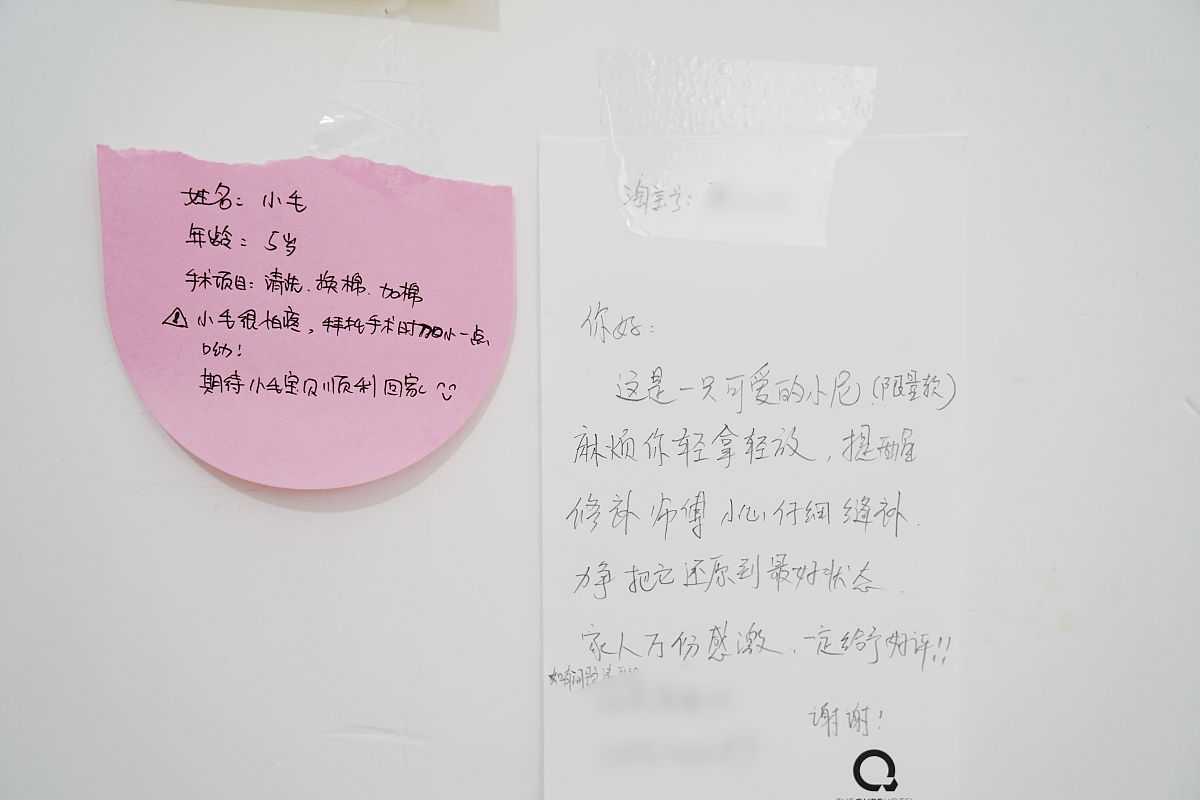 姓名：小毛
年龄：5岁
手术项目：清洗、换棉、加棉
⚠小毛很怕疼，拜托手术时加小一点
呦！
期待小毛宝贝顺利回家
淘宝号：
你好：
这是一只可爱的小尼（限量款）
麻烦你轻拿轻放，提醒
修补师傅小心仔细缝补.
力争把它还原到最好状态.
家人万份感激、一定给予好评!!
如有问题
谢谢！